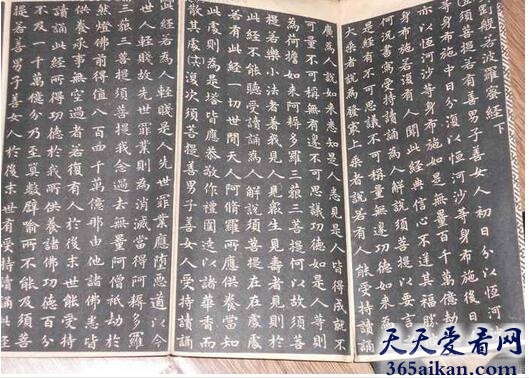 剛般若波羅蜜經下
五)須菩提若有善男子善女人初日分以恒河
身布施中日分復以恒河沙等身布施後日
亦以恒河沙等身布施如是無量百千萬億劫
身布施若復有人聞此經典信心不逆其福勝
何況書寫受持讀誦為人解說須菩提以要言
是經有不可思議不可稱量無邊功德如來為
大乘者說為發最上乘者說若有人能受持讀誦
廣為人說如來悉知是人悉見是人皆得成就不
可量不可稱無有邊不可思議功德如是人等則
為荷擔如來阿耨多羅三藐三菩提何以故須菩
提若樂小法者著我見人見眾生見壽者見則於
此經不能聽受讀誦為人解說須菩提在在處處
若有此經一切世間天人阿脩羅所應供養當知
此處則為是塔皆應恭敬作禮圍遶以諸華香而
散其處(六)復次須菩提善男子善女人受持讀誦
此經若為人輕賤是人先世罪業應墮惡道以今
世人輕賤故先世罪業則為消滅當得阿耨多羅
三藐三菩提須菩提我念過去無量阿僧祇劫於
然燈佛前得值八百四千萬億那由他諸佛悉皆
供養承事無空過者若復有人於後末世能受持
讀誦此經所得功德於我所供養諸佛功德百分
不及一千萬億分乃至算數譬喻所不能及須菩
提若善男子善女人於後末世有受持讀誦此經
天天爱看网
365aikan.com